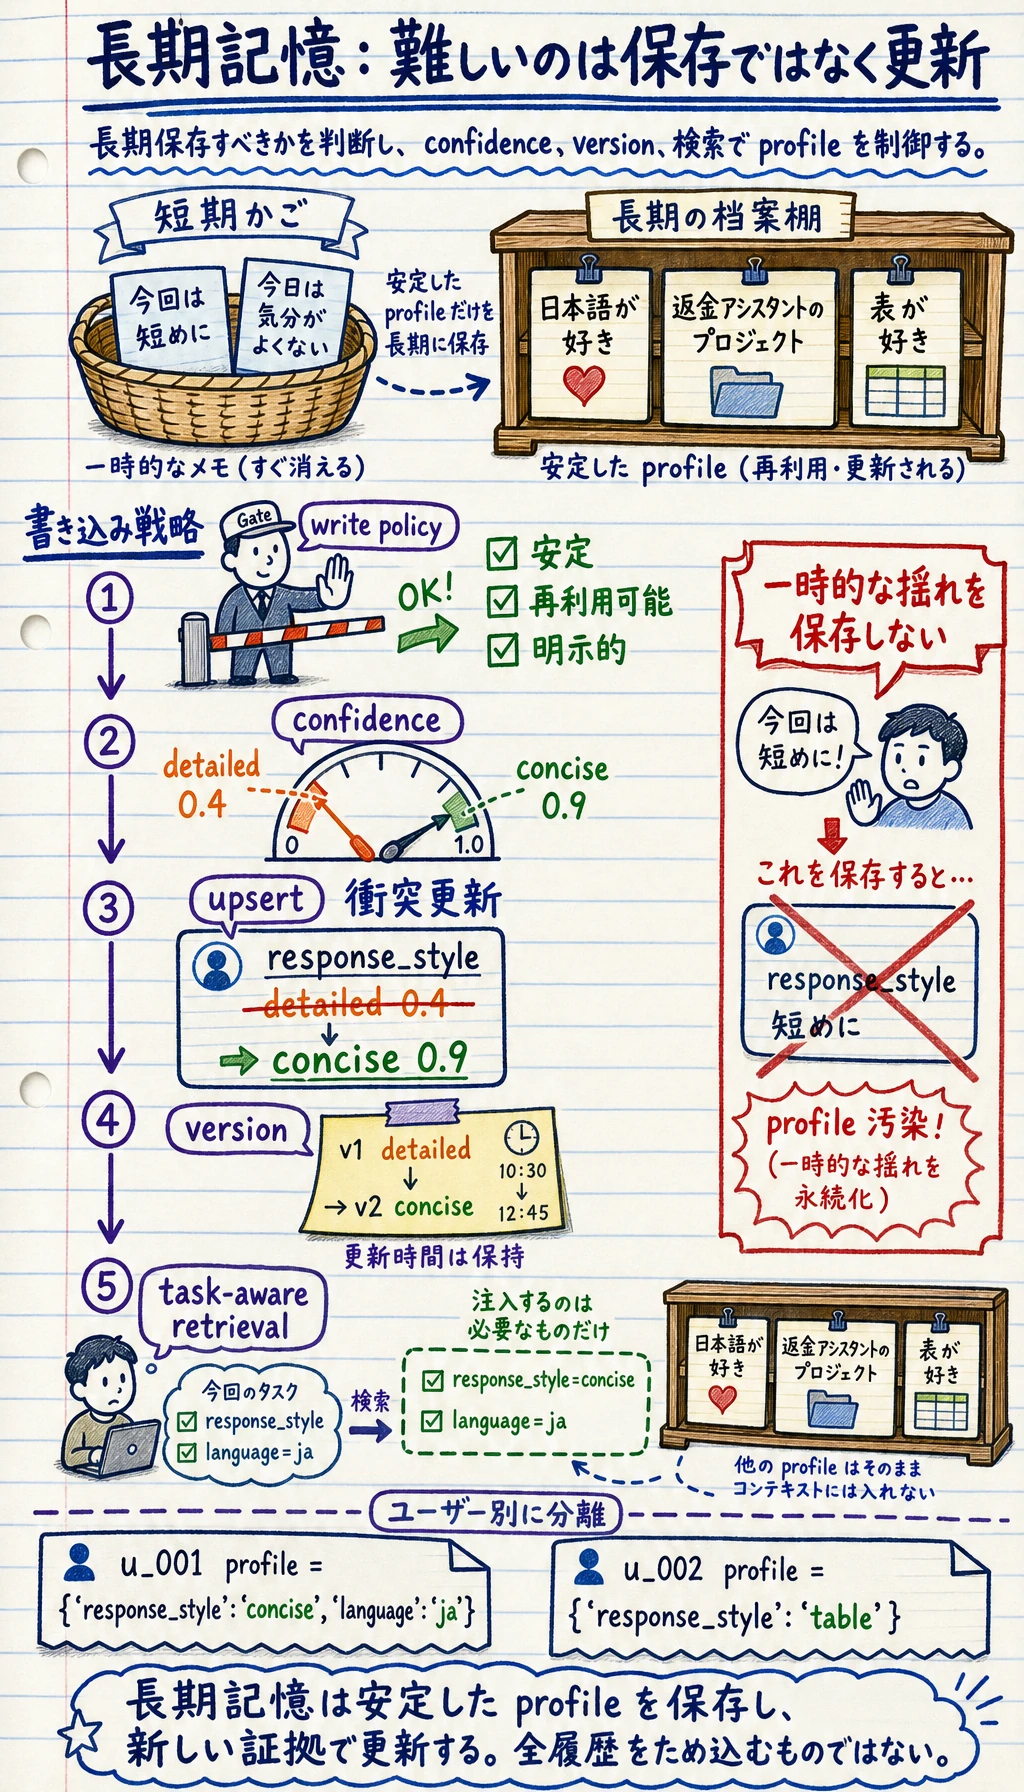 長期記憶：難しいのは保存ではなく更新
長期保存すべきかを判断し、confidence、version、検索で profile を制御する。
短期かご
今回は
短めに
今日は
気分が
よくない
一時的なメモ（すぐ消える）
安定した
profileだけを
長期に保存
長期の档案棚
日本語が
好き
返金アシスタントの
プロジェクト
表が
好き
安定した profile（再利用・更新される）
書き込み戦略
1
Gate
write policy
OK!
安定
再利用可能
明示的
2
confidence
detailed
0.4
concise
0.9
0
1.0
3
upsert
衝突更新
response_style
detailed 0.4
concise 0.9
4
version
v1 detailed
→ v2 concise
10:30
↓
12:45
更新時間は保持
一時的な揺れを
保存しない
今回は
短めに！
これを保存すると…
response_style
短めに
profile 汚染！
（一時的な揺れを
永続化）
5
task-aware
retrieval
今回のタスク
response_style
language=ja
検索
注入するのは
必要なものだけ
response_style=concise
language=ja
日本語が
好き
返金アシスタントの
プロジェクト
表が
好き
他の profile はそのまま
コンテキストには入れない
ユーザー別に分離
u_001 profile =
{‘response_style’:‘concise’,‘language’:‘ja’}
u_002 profile =
{‘response_style’: ‘table’}
長期記憶は安定した profile を保存し、
新しい証拠で更新する。全履歴をため込むものではない。